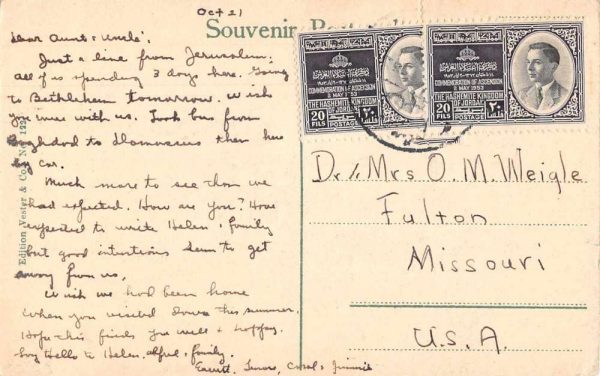 Oct 21
Souvenir
Dear Aunt & Uncle:
Just a line from Jerusalem;
all of us spending 3 days here. Going
to Bethlehem tomorrow. Wish
you were with us. Took bus from
Baghdad to Damascus then here
by car.
Much more to see than we
had expected. How are you? Have
expected to write Helen & family
but good intentions seem to get
away from us.
Wish we had been home
when you visited down this summer.
Hope this finds you well & happy.
Say Hello to Helen, & family.
Carol & Jimmie
Edition Vester & Co.
COMMEMORATION OF ASCENSION
2 MAY 1953
THE HASHEMITE KINGDOM
OF JORDAN
20
FILS
POSTAGE
COMMEMORATION OF ASCENSION
2 MAY 1953
THE HASHEMITE KINGDOM
OF JORDAN
20
FILS
POSTAGE
Dr. & Mrs O. M. Weigle
Fulton
Missouri
U.S.A.